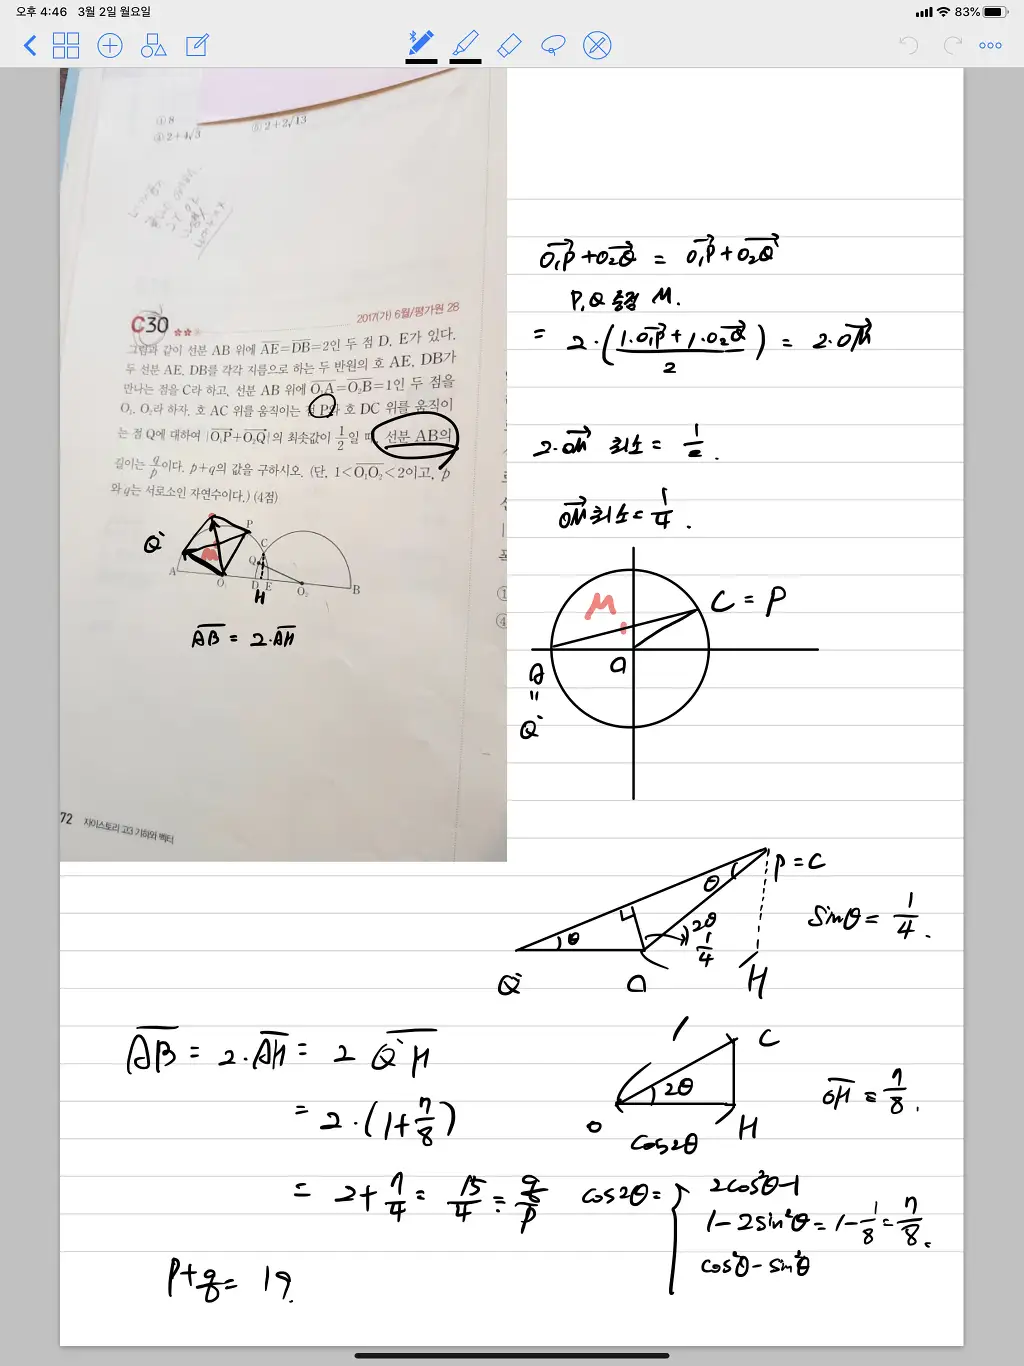 오후 4:46 3월 2일 월요일
83%
① 8
④ 2+4√3
⑤ 2+2√13
C30
2017(가) 6월/평가원 28
그림과 같이 선분 AB 위에 AE=DB=2인 두 점 D, E가 있다.
두 선분 AE, DB를 각각 지름으로 하는 두 반원의 호 AE, DB가
만나는 점을 C라 하고, 선분 AB 위에 O₁A=O₂B=1인 두 점을
O₁, O₂라 하자. 호 AC 위를 움직이는 점 P와 호 DC 위를 움직이
는 점 Q에 대하여 |O₁P+O₂Q|의 최솟값이 1/2일 때, 선분 AB의
길이는 q/p이다. p+q의 값을 구하시오. (단, 1<O₁O₂<2이고, p
와 q는 서로소인 자연수이다.) (4점)
Q` M P C Q
A O₁ D E O₂ B
H
AB = 2·AH
72 자이스토리 고3 기하와 벡터
O₁P+O₂Q = O₁P+O₂Q`
P, Q` 중점 M.
= 2·(1·O₁P+1·O₂Q`/2) = 2·OM
2·OM 최소 = 1/2.
OM 최소 = 1/4.
M C = P
A O
=
Q`
P = C
θ
θ 2θ
1/4
Q` O H
sinθ = 1/4.
1 C
2θ
O H
cos2θ
OH = 7/8.
AB = 2·AH = 2 Q`H
= 2·(1+7/8)
= 2+7/4 = 15/4 = q/p
cos2θ = 2cos²θ-1
1-2sin²θ = 1-1/8 = 7/8.
cos²θ-sin²θ
p+q = 19.